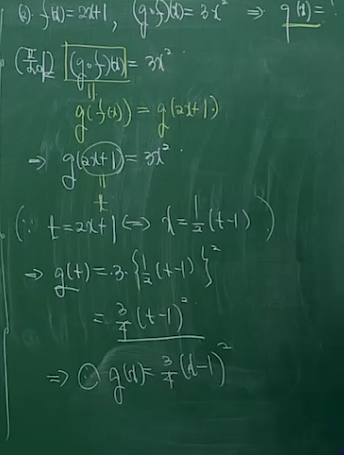 (2). f(x)=2x+1, (g∘f)(x)=3x² ⇒ g(x)=
(풀이) (g∘f)(x)=3x².
g(f(x))=g(2x+1)
⇒ g(2x+1)=3x².
t
(∵ t=2x+1 ⇔ x=½(t-1))
⇒ g(t)=3·{½(t-1)}²
=¾(t-1)².
⇒ ∴ g(x)=¾(x-1)²